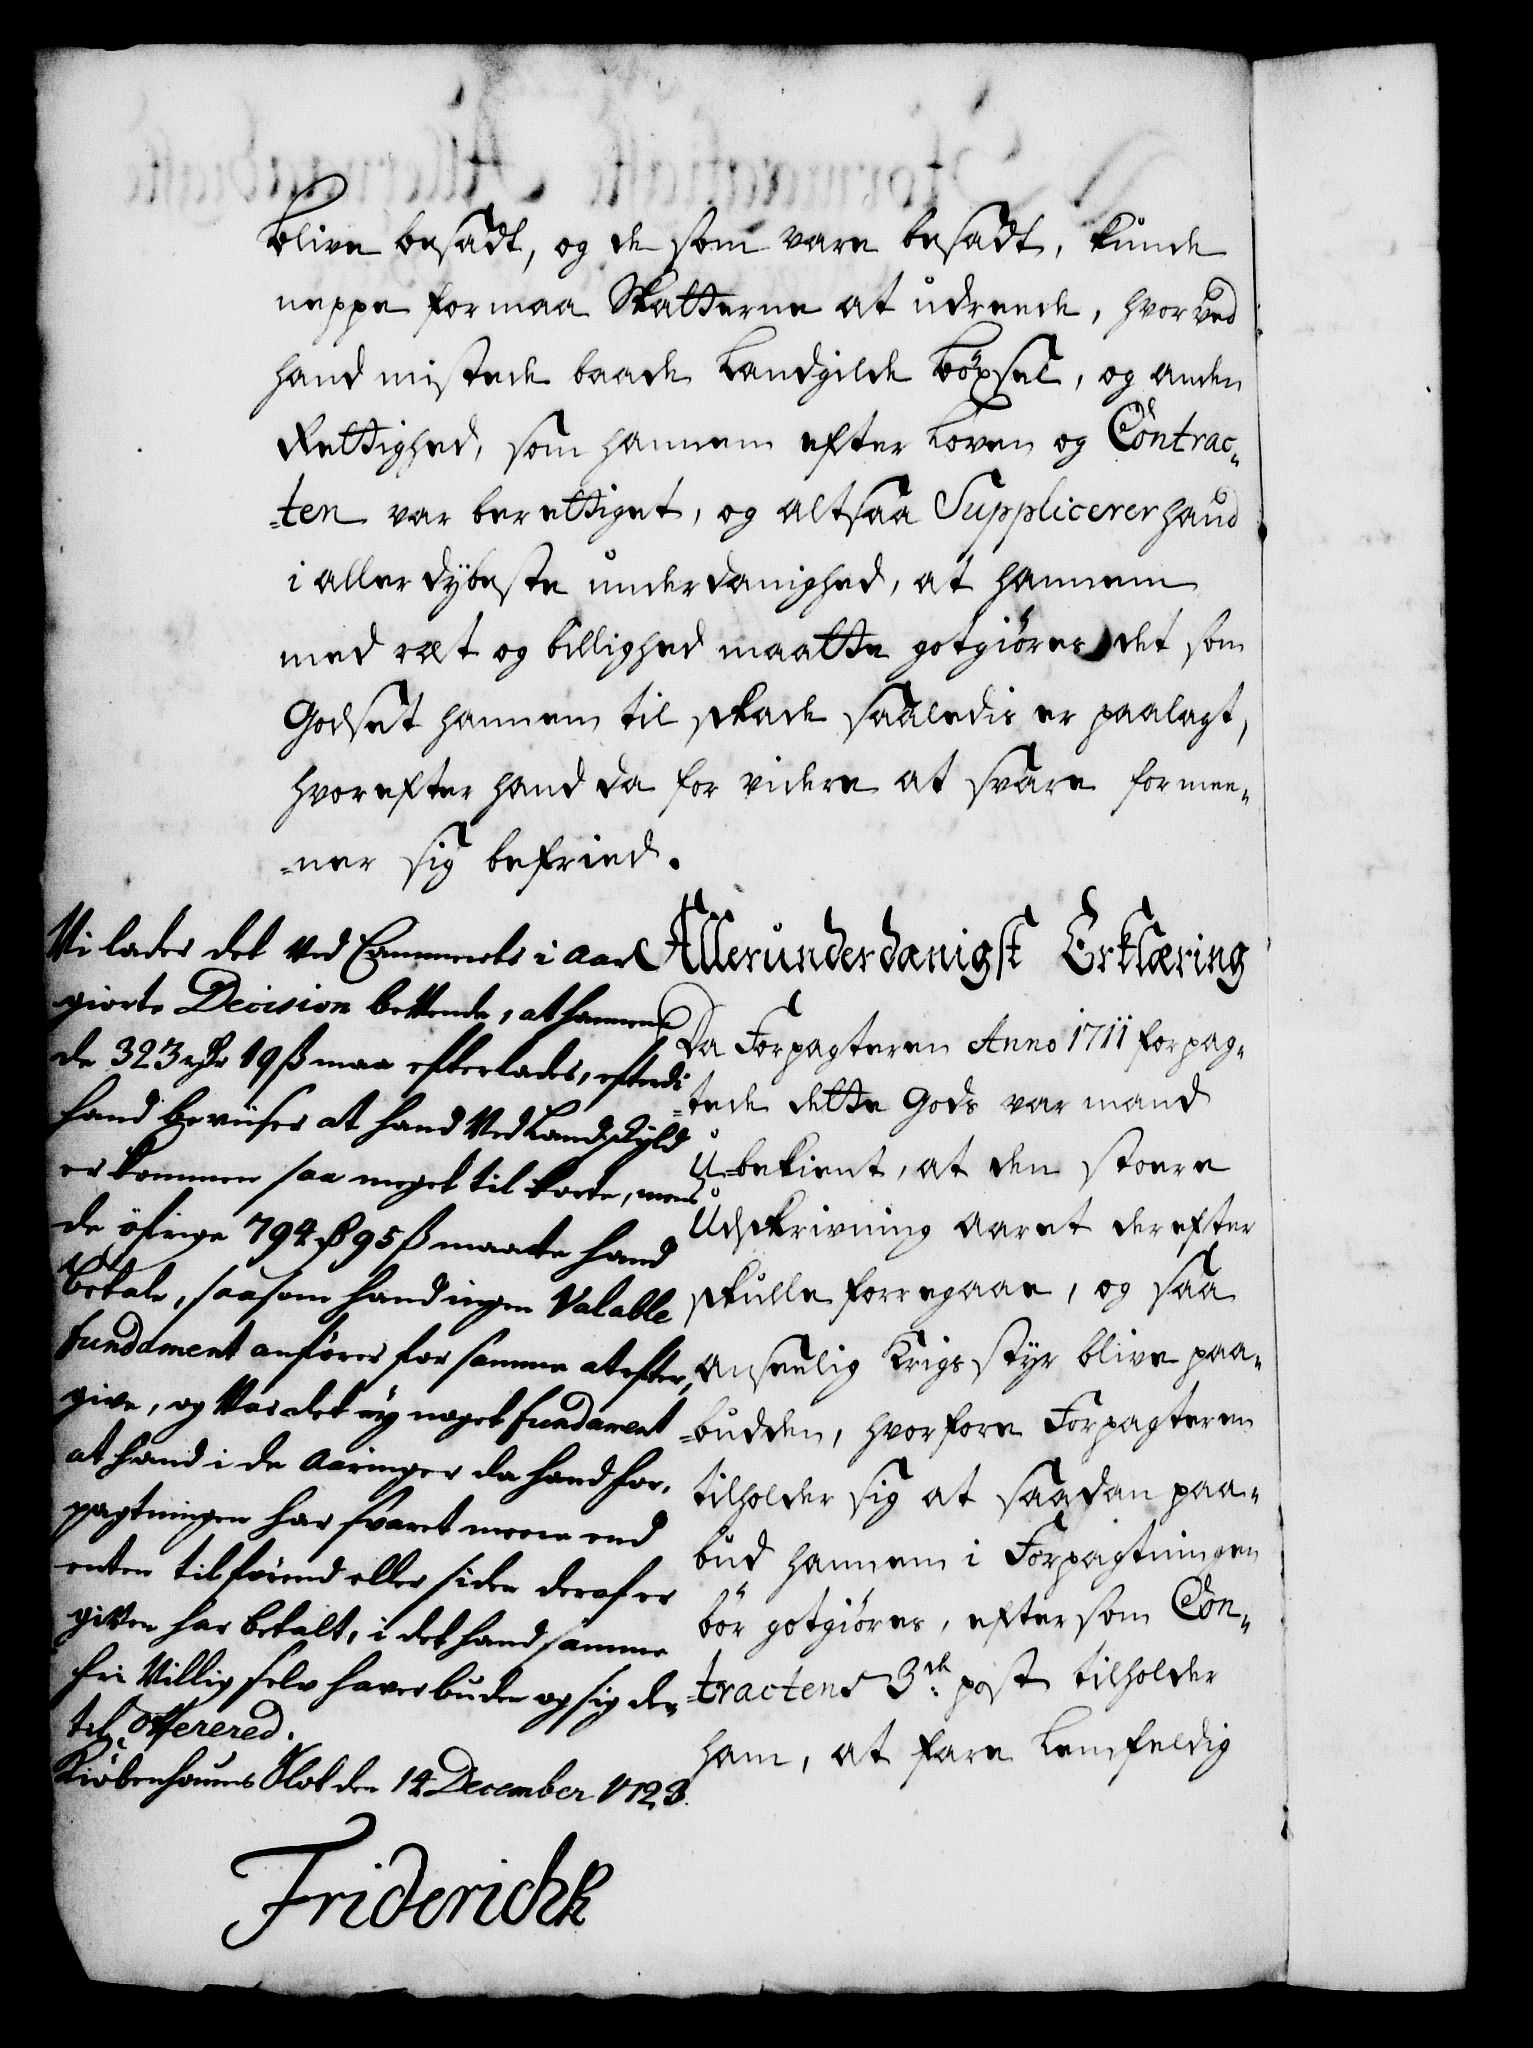 blive besadt, og de som vare besadt, kunde
neppe formaa Skatterne at udreede, hvorved
hand mistede baade Landgilde Böxsel, og anden
Rettighed, som hannem efter Loven og Contrac-
-ten var berettiget, og altsaa Supplicerer hand
i aller dybeste underdanighed, at hannem
med ræt og billighed maatte gotgiöres det som
Godset hannem til skade saaledis er paalagt,
hvorefter hand da for videre at svare formee-
-ner sig befried.
Allerunderdanigst Erklæring
Da Forpagteren Anno 1711 forpag-
-tede dette Gods var mand
U-bekient, at den stoere
Udskrivning aaret derefter
skulle forregaae, og saa
anseelig Krigs styr blive paa-
-budden, hvorfore Forpagteren
tilholder sig at saadan paa-
bud hannem i Forpagtningen
bör gotgiöres, eftersom Con-
-tractens 3de post tilholder
ham, at fare Lemfeldig
Vi lader det ved Cammerets i aar
giorte Decision bettende, at hannem
de 323 rdr 19 ß maa efterlades, efterdi
hand beviiser at hand ved Landskyld
er kommen saa meget til korte, mens
de öfrige 794 rdr 95 ß maatte hand
betale, saasom hand ingen Valable
fundament anförer for samme at efter-
give, og var det ey noget fundament
at hand i de aaringer da hand for-
pagtningen har svaret meere end
enten tilforend eller siden deraf er
given har betalt, i det hand samme
fri villig selv haver buden og sig der
til offerered.
Kiöbenhauns Slot den 14 December 1723.
Friderich R